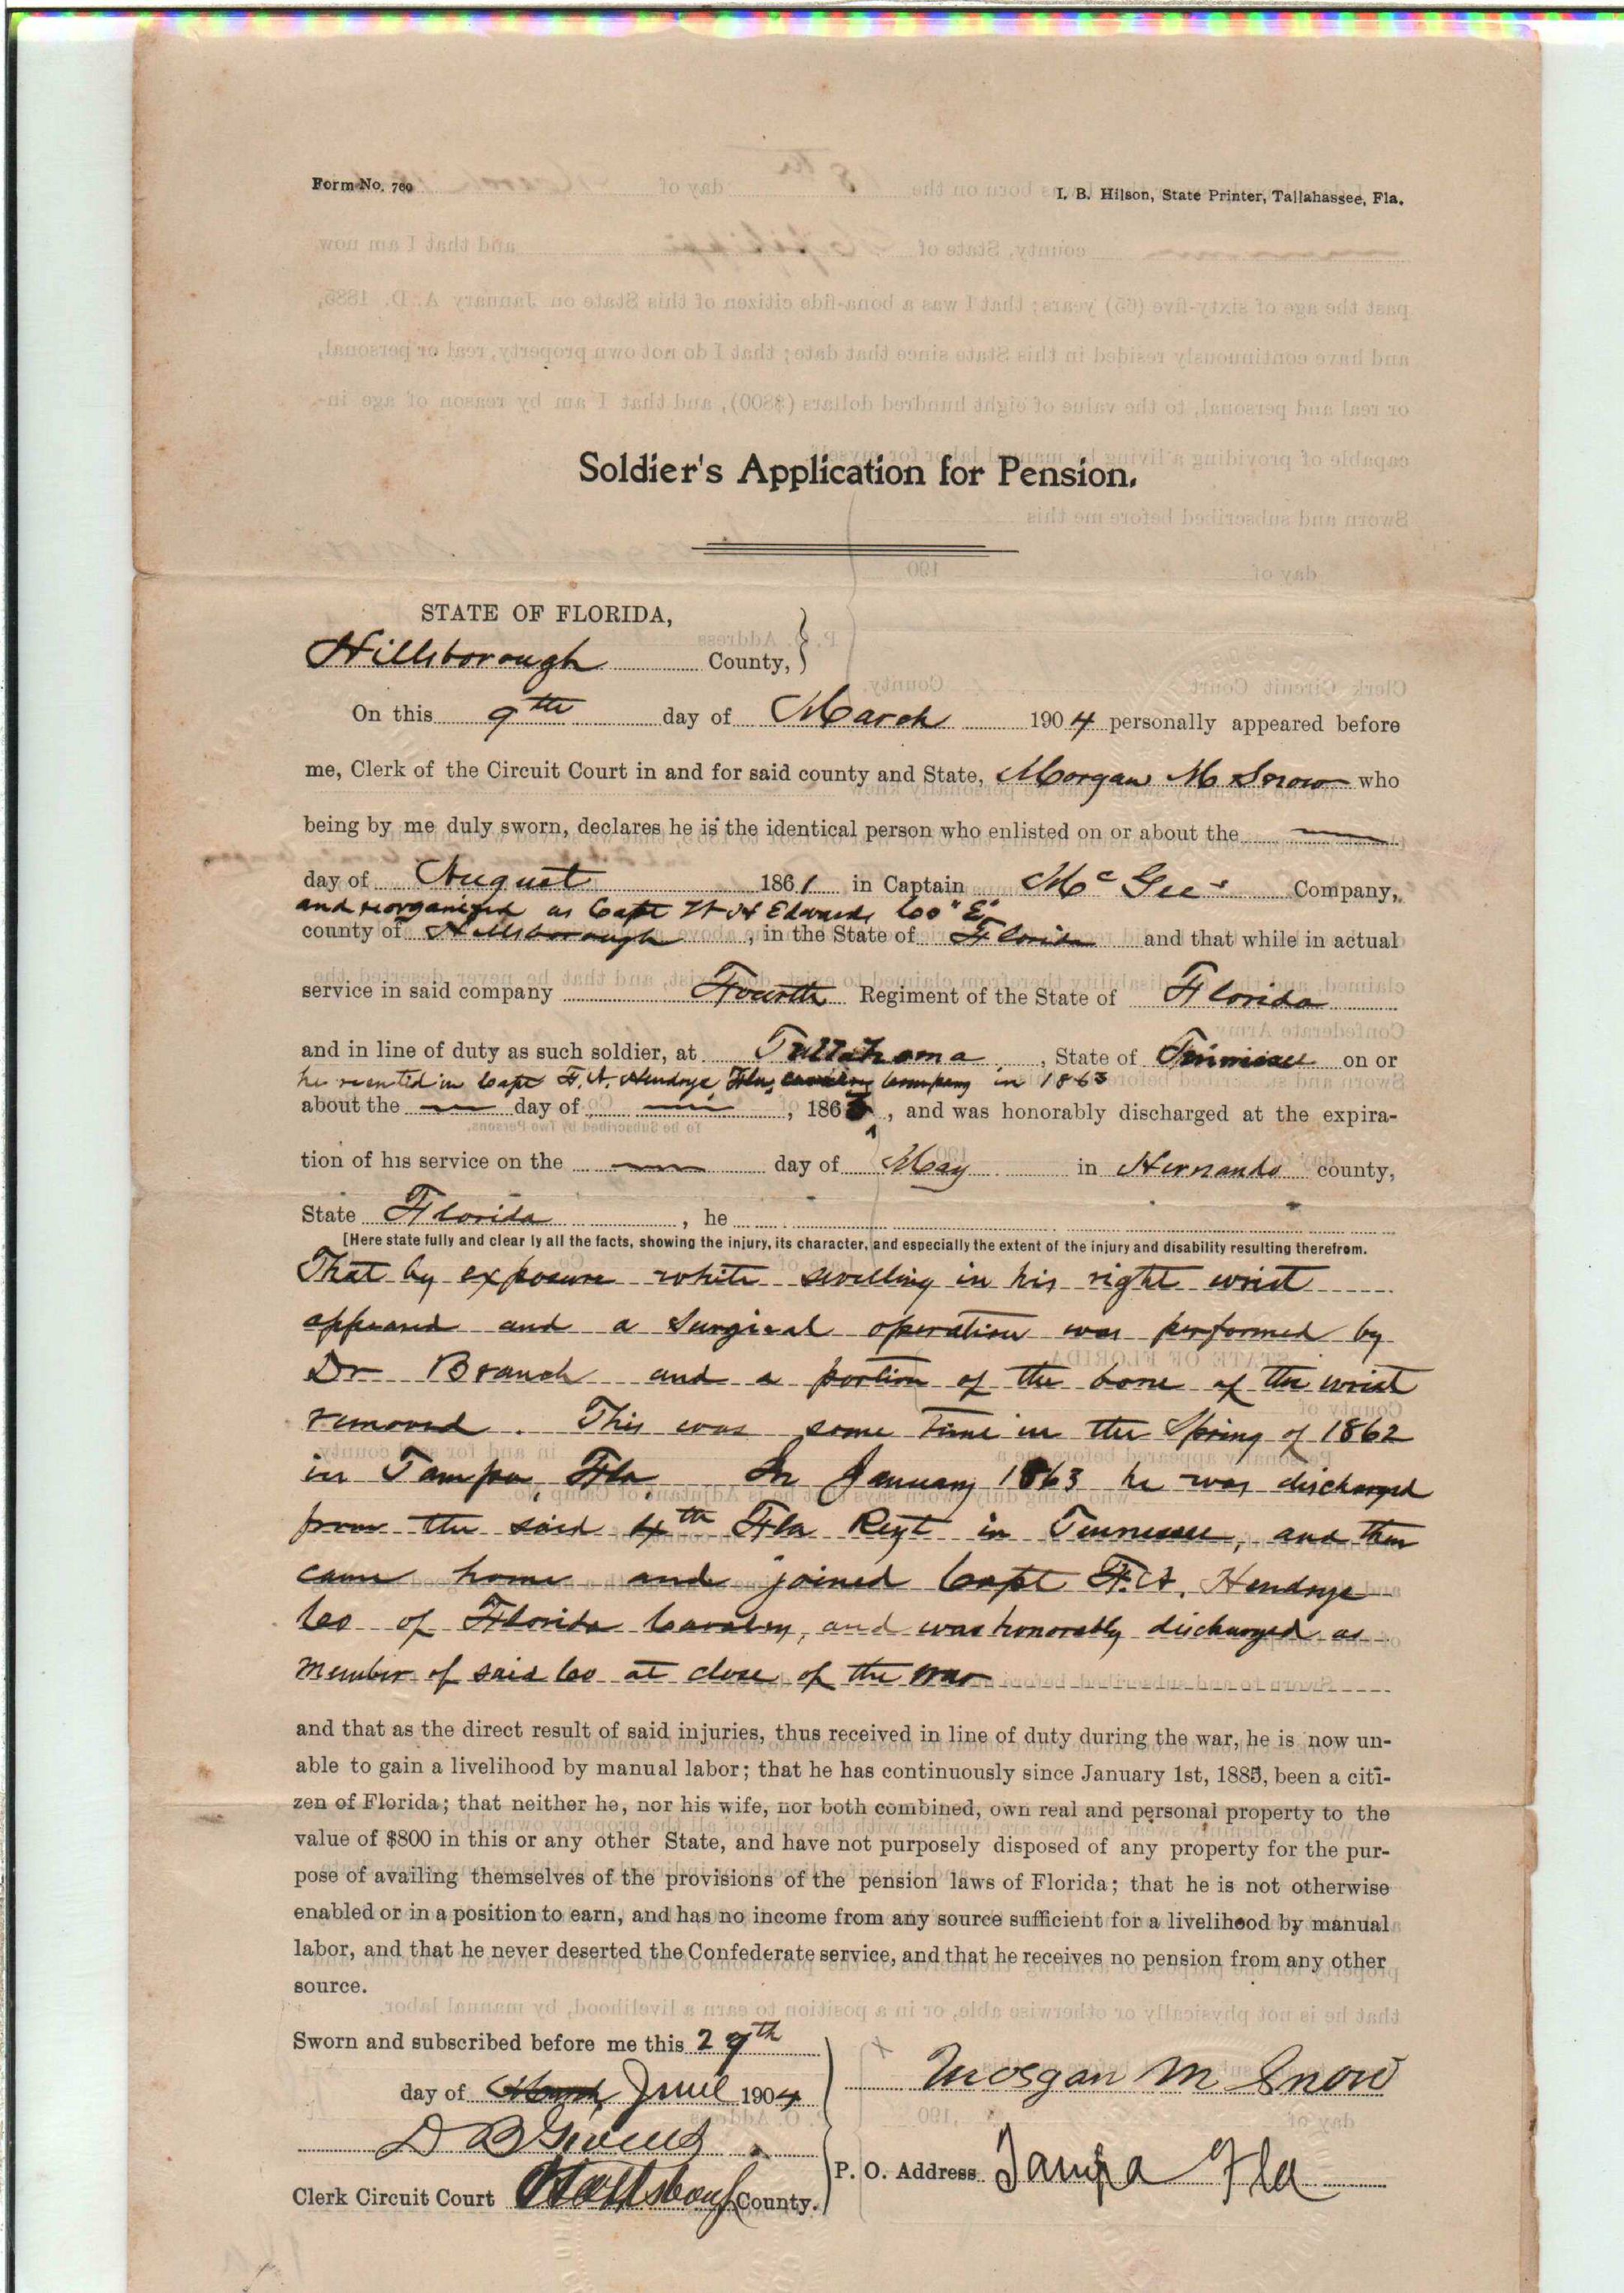 Form No. 760
I. B. Hilson, State Printer, Tallahassee, Fla.
Soldier's Application for Pension.
STATE OF FLORIDA,
Hillsborough County,
On this 9th day of March 1904 personally appeared before
me, Clerk of the Circuit Court in and for said county and State, Morgan M Snow who
being by me duly sworn, declares he is the identical person who enlisted on or about the
day of August 1861 in Captain McGee's Company,
and reorganized as Capt W H Edwards Co "E"
county of Hillsborough, in the State of Florida and that while in actual
service in said company Fourth Regiment of the State of Florida
and in line of duty as such soldier, at Tullahoma, State of Tennessee on or
he Capt F. A. Hendrye Fla, cavalry Company in 1863
about the day of , 186 , and was honorably discharged at the expira-
tion of his service on the day of May in Hernando county,
State Florida, he
[Here state fully and clearly all the facts, showing the injury, its character, and especially the extent of the injury and disability resulting therefrom.
That by exposure white swelling in his right wrist
appeared and a surgical operation was performed by
Dr Branch and a portion of the bone of the wrist
removed. This was some time in the Spring of 1862
in Tampa, Fla. In January 1863 he was discharged
from the said 4th Fla Regt in Tennessee, and then
came home and joined Capt F. A. Hendrye
Co of Florida Cavalry, and was honorably discharged as
member of said Co at close of the war
and that as the direct result of said injuries, thus received in line of duty during the war, he is now un-
able to gain a livelihood by manual labor; that he has continuously since January 1st, 1885, been a citi-
zen of Florida; that neither he, nor his wife, nor both combined, own real and personal property to the
value of $800 in this or any other State, and have not purposely disposed of any property for the pur-
pose of availing themselves of the provisions of the pension laws of Florida; that he is not otherwise
enabled or in a position to earn, and has no income from any source sufficient for a livelihood by manual
labor, and that he never deserted the Confederate service, and that he receives no pension from any other
source.
Sworn and subscribed before me this 29th
day of March June 1904
Morgan M Snow
D B Givens
P. O. Address Tampa Fla
Clerk Circuit Court Hillsboro County.